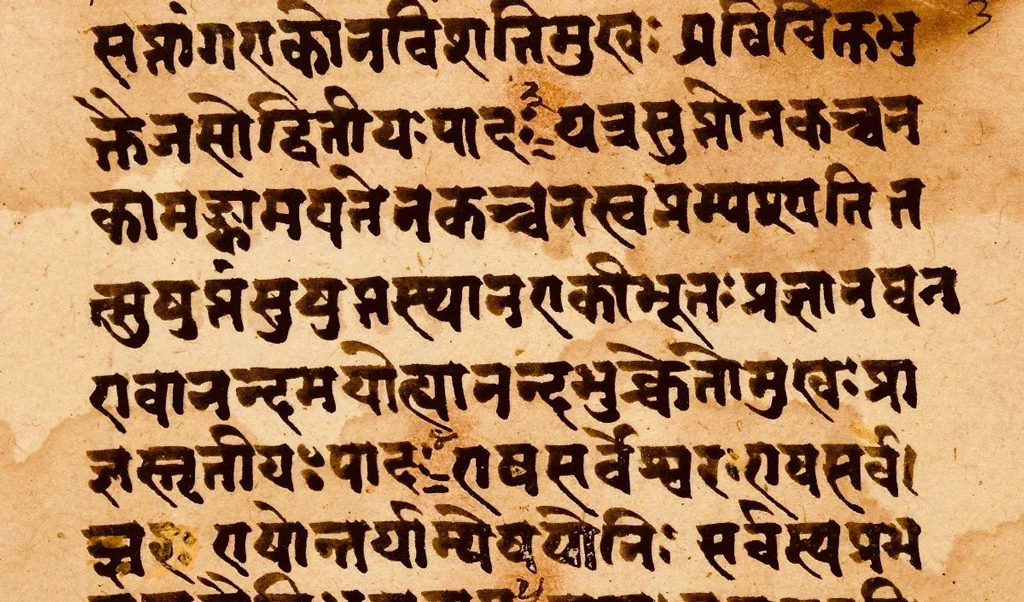 सप्तांगएकोनविंशतिमुखः प्रविविक्तभु
क्तैजसोद्वितीयःपादः ३ यत्रसुप्तोनकञ्चन
कामङ्कामयतेनकञ्चनस्वप्नम्पश्यतित
त्सुषुप्तंसुषुप्तस्थानएकीभूतःप्रज्ञानघन
एवानन्दमयोह्यानन्दभुक्चेतोमुखःप्रा
ज्ञस्तृतीयःपादः ४ एषसर्वेश्वरःएषसर्व
ज्ञः एषोन्तर्याम्येषयोनिः सर्वस्यप्रभ